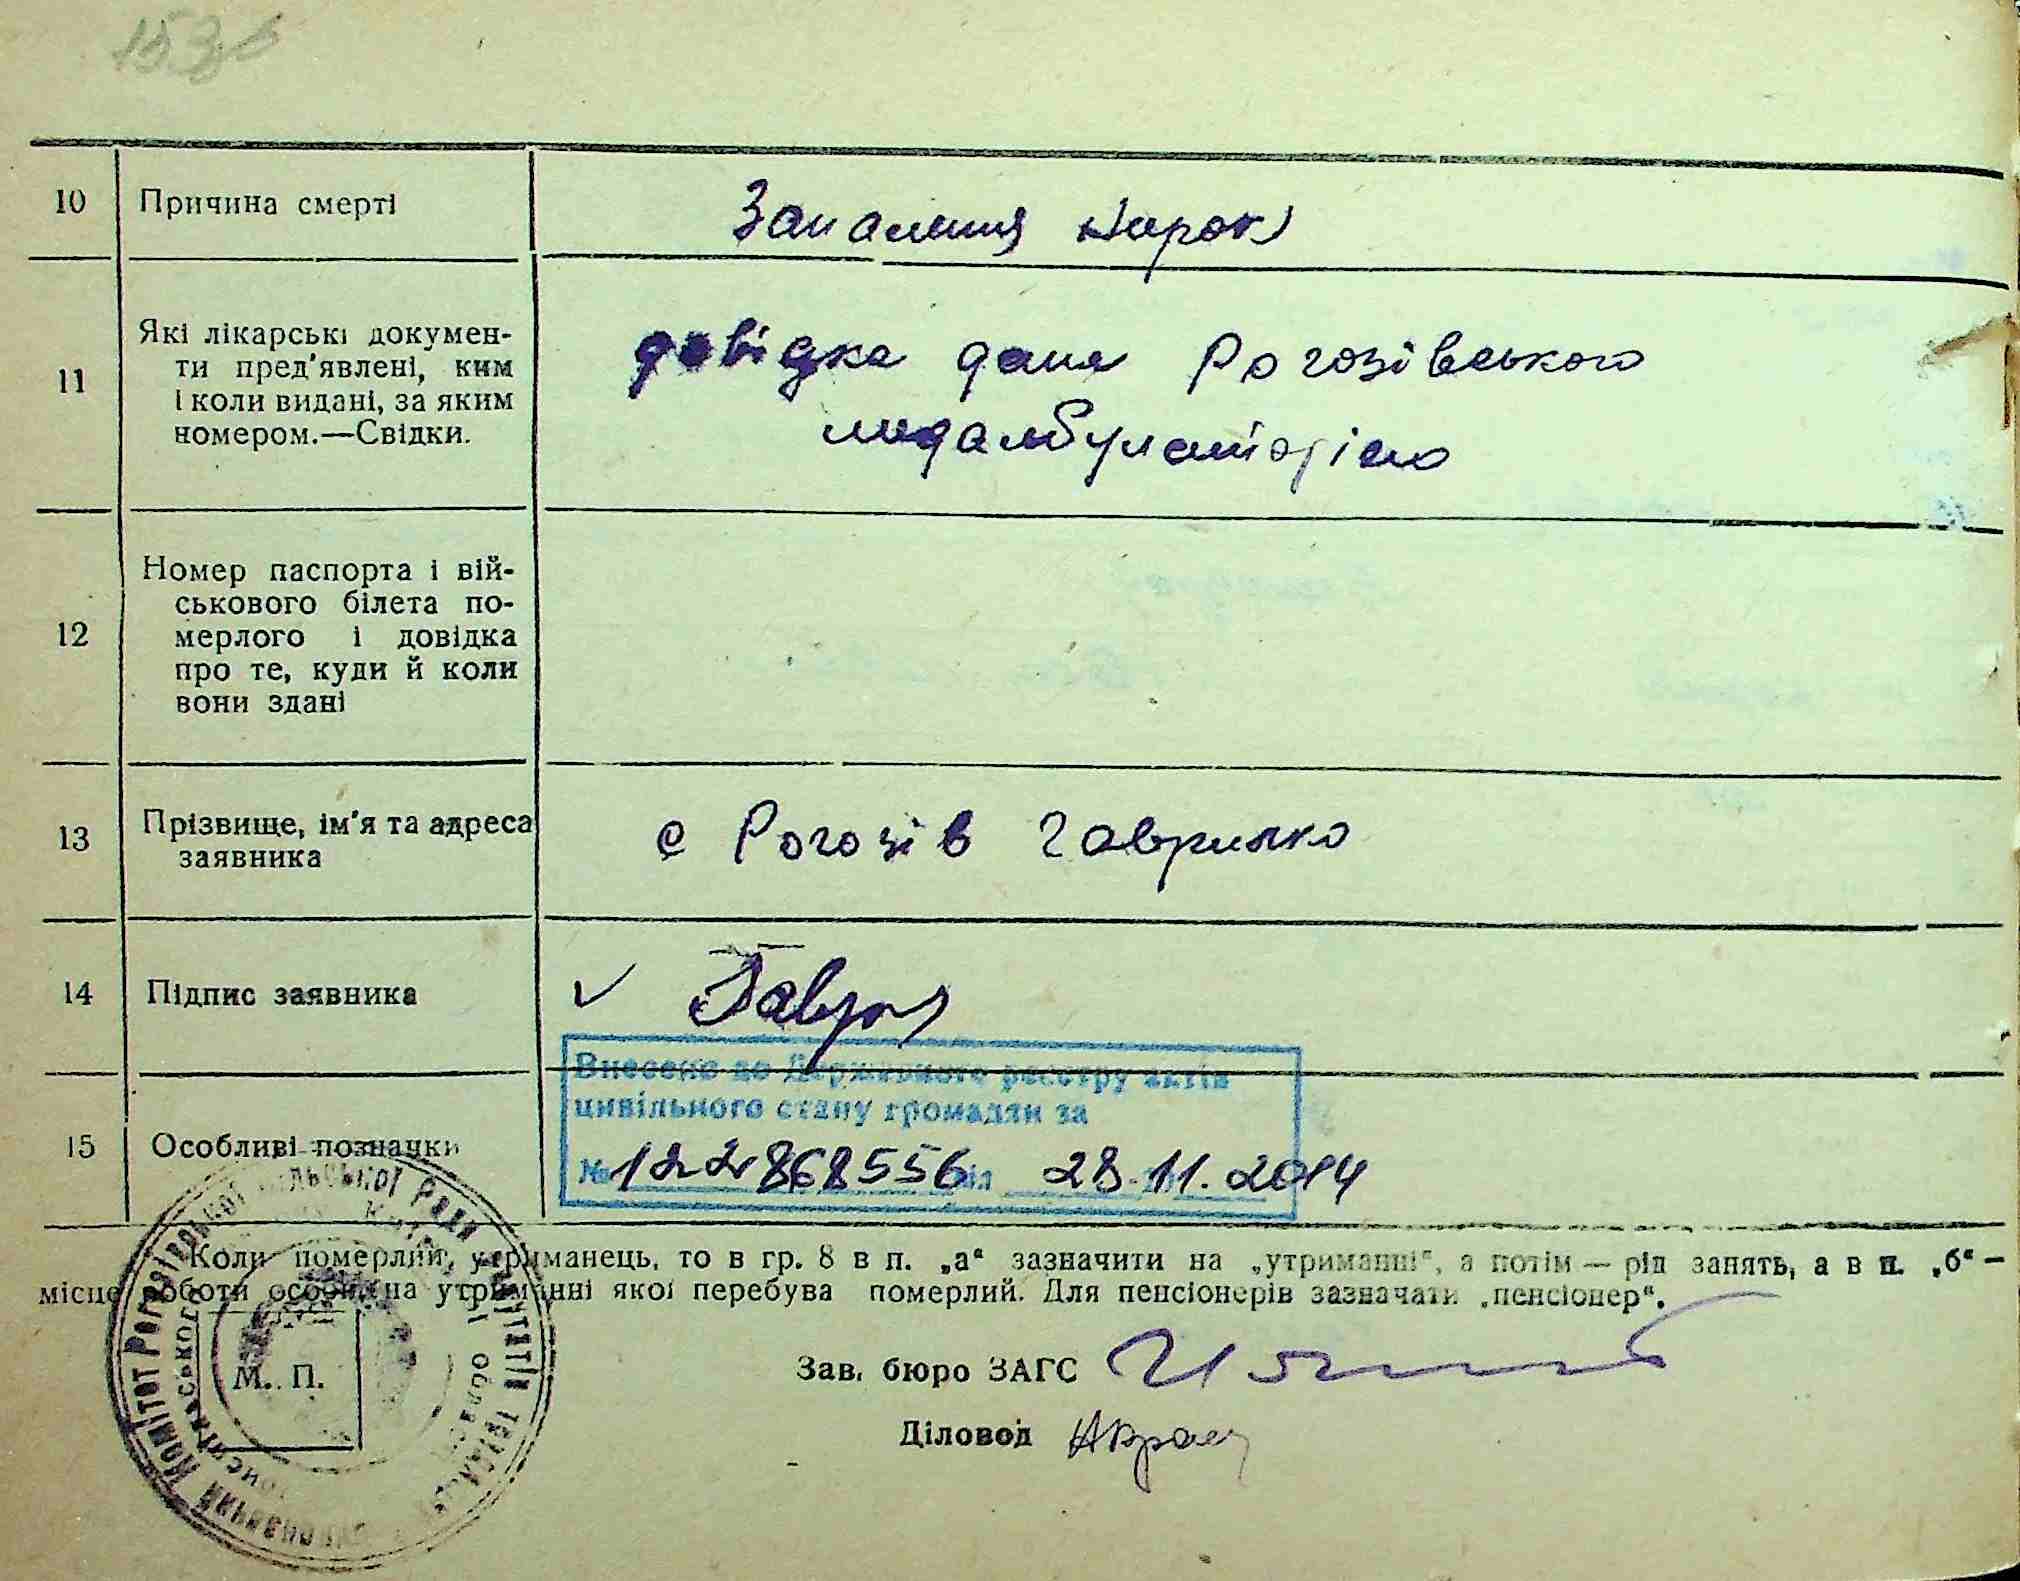 10 Причина смерті Запалення нирок
11 Які лікарські докумен-
ти пред'явлені, ким
і коли видані, за яким
номером.—Свідки.
довідка дана Рогозівського
медамбулаторією
12 Номер паспорта і вій-
ськового білета по-
мерлого і довідка
про те, куди й коли
вони здані
13 Прізвище, ім'я та адреса
заявника
с Рогозів Гаврилько
14 Підпис заявника
Внесено до Державного реєстру актів
цивільного стану громадян за
15 Особливі позначки
№ 122868556 від 28.11.2014
Коли померлий, утриманець, то в гр. 8 в п. „а“ зазначити на „утриманні“, а потім — рід занять, а в п. „б“ —
місце роботи особи, на утриманні якої перебува померлий. Для пенсіонерів зазначати „пенсіонер“.
М. П.
Зав. бюро ЗАГС
Діловод